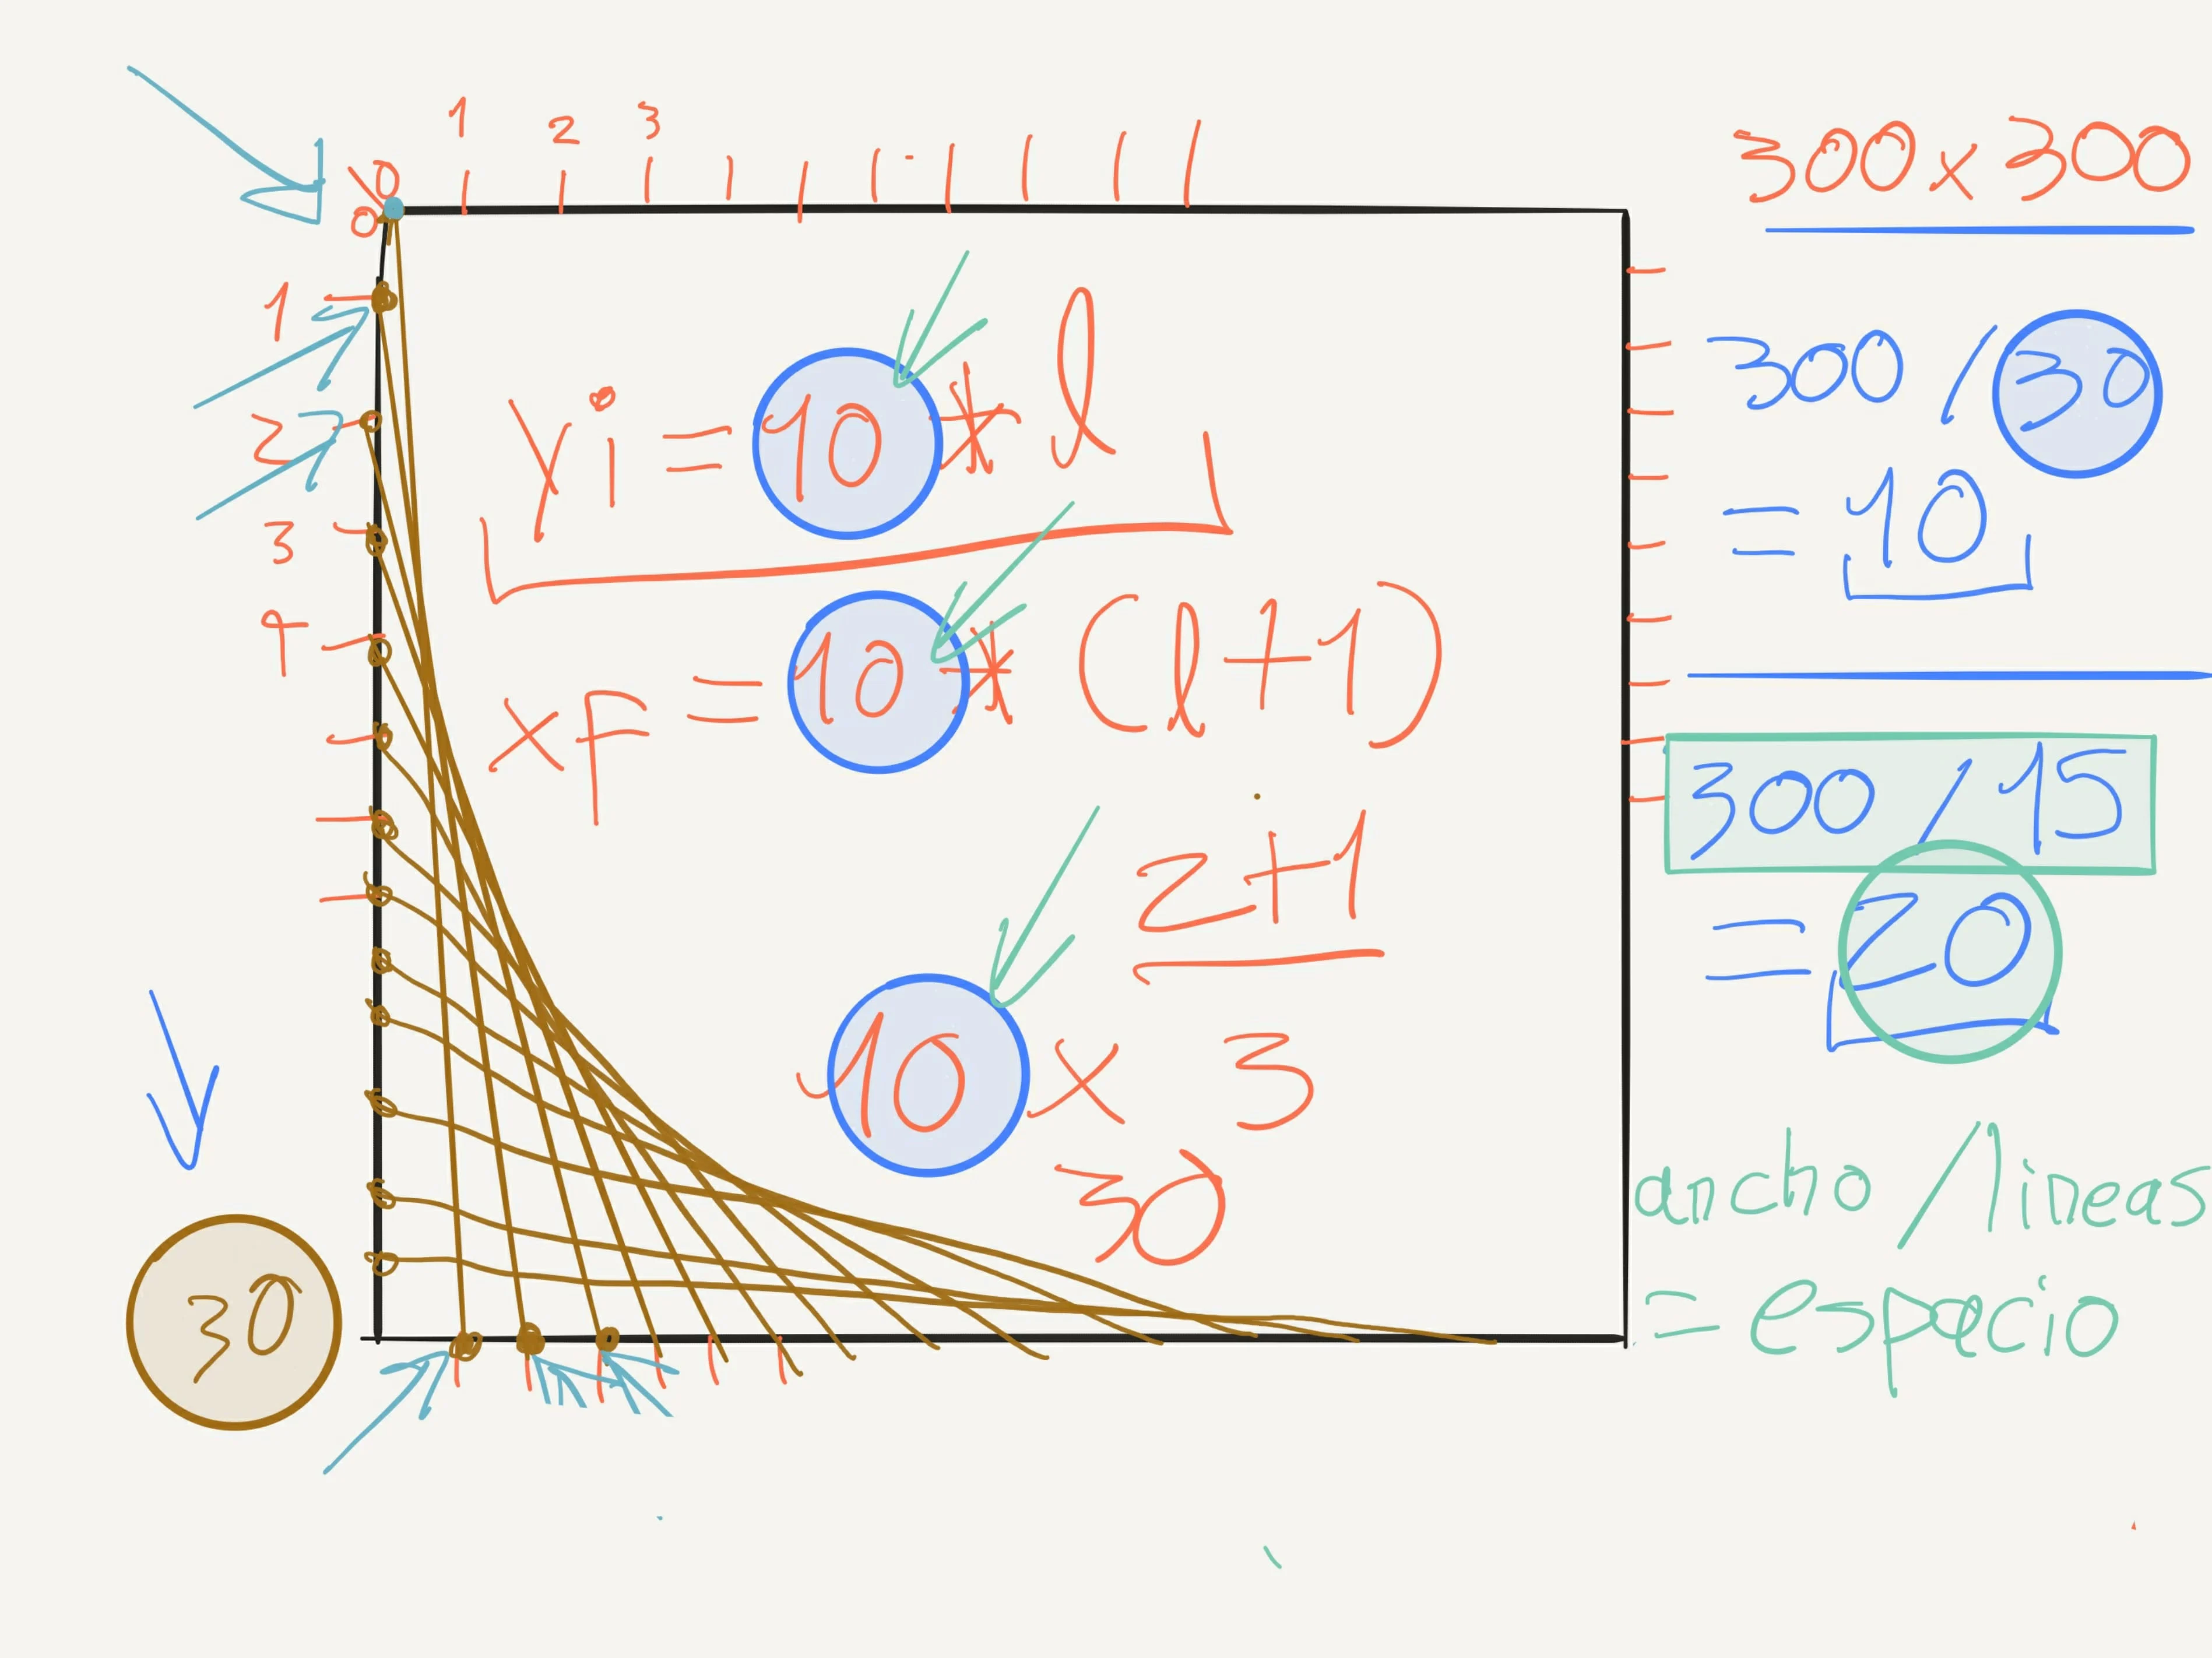 0 1 2 3
0
1
2
3
4
yi = 10 * l
xF = 10 * (l+1)
2+1
10 x 3
30
30
300x300
300/30
= 10
300/15
= 20
ancho/lineas
= espacio